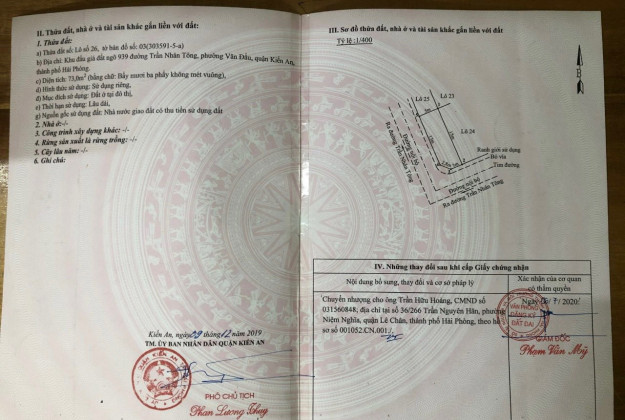 II. Thửa đất, nhà ở và tài sản khác gắn liền với đất:
1. Thửa đất:
a) Thửa đất số: Lô số 26, tờ bản đồ số: 03(303591-5-a)
b) Địa chỉ: Khu đấu giá đất ngõ 939 đường Trần Nhân Tông, phường Văn Đẩu, quận Kiến An,
thành phố Hải Phòng.
c) Diện tích: 73,0m² (bằng chữ: Bẩy mươi ba phẩy không mét vuông),
d) Hình thức sử dụng: Sử dụng riêng,
đ) Mục đích sử dụng: Đất ở tại đô thị,
e) Thời hạn sử dụng: Lâu dài,
g) Nguồn gốc sử dụng đất: Nhà nước giao đất có thu tiền sử dụng đất
2. Nhà ở: -/-
3. Công trình xây dựng khác: -/-
4. Rừng sản xuất là rừng trồng: -/-
5. Cây lâu năm: -/-
6. Ghi chú:
Kiến An, ngày 09 tháng 12 năm 2019
TM. ỦY BAN NHÂN DÂN QUẬN KIẾN AN
PHÓ CHỦ TỊCH
Phan Lương Thay
III. Sơ đồ thửa đất, nhà ở và tài sản khác gắn liền với đất
Tỷ lệ 1/400
B
Lô 25
Lô 23
Lô 24
Ranh giới sử dụng
Bó vỉa
Tim đường
Đường nội bộ
Ra đường Trần Nhân Tông
Đường nội bộ
Ra đường Trần Nhân Tông
IV. Những thay đổi sau khi cấp Giấy chứng nhận
Nội dung bổ sung, thay đổi và cơ sở pháp lý
Xác nhận của cơ quan
có thẩm quyền
Chuyển nhượng cho ông Trần Hữu Hoàng, CMND số
031560848, địa chỉ tại số 36/266 Trần Nguyên Hãn, phường
Niệm Nghĩa, quận Lê Chân, thành phố Hải Phòng, theo hồ
sơ số 001052.CN.001./.
2020
VĂN PHÒNG
ĐĂNG KÝ
ĐẤT ĐAI
GIÁM ĐỐC
Phạm Văn Mỹ